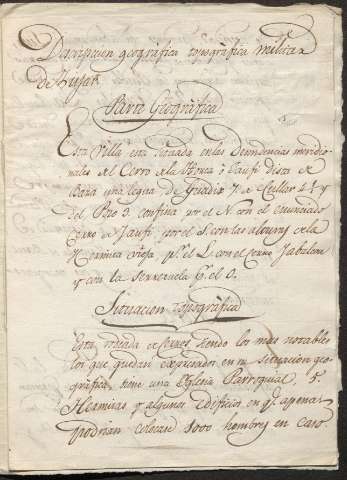 Descripcion geográfica topográfica militar
de
Parte Geográfica
Esta Villa está situada en las Dependencias meridio
nales del Cerro de la ó Jaufi dista de
Baza una legua de Guadix 7 de Cullar 4 ½ y
del Pozo 3. confina por el N. con el enunciado
Cerro de Jaufi por el S. con las alturas de la
Hermita Vieja pr. el L. con el Cerro Jabalcon
y con la Serrezuela pr. el O.
Situacion topográfica
Esta rodeada de Cerros, siendo los mas notables
los que quedan expresados en su situacion geo
gráfica, tiene una Yglesia Parroquial, 5.
Hermitas y algunos Edificios en qe. apenas
podrian colocarse 1000 hombres en caso